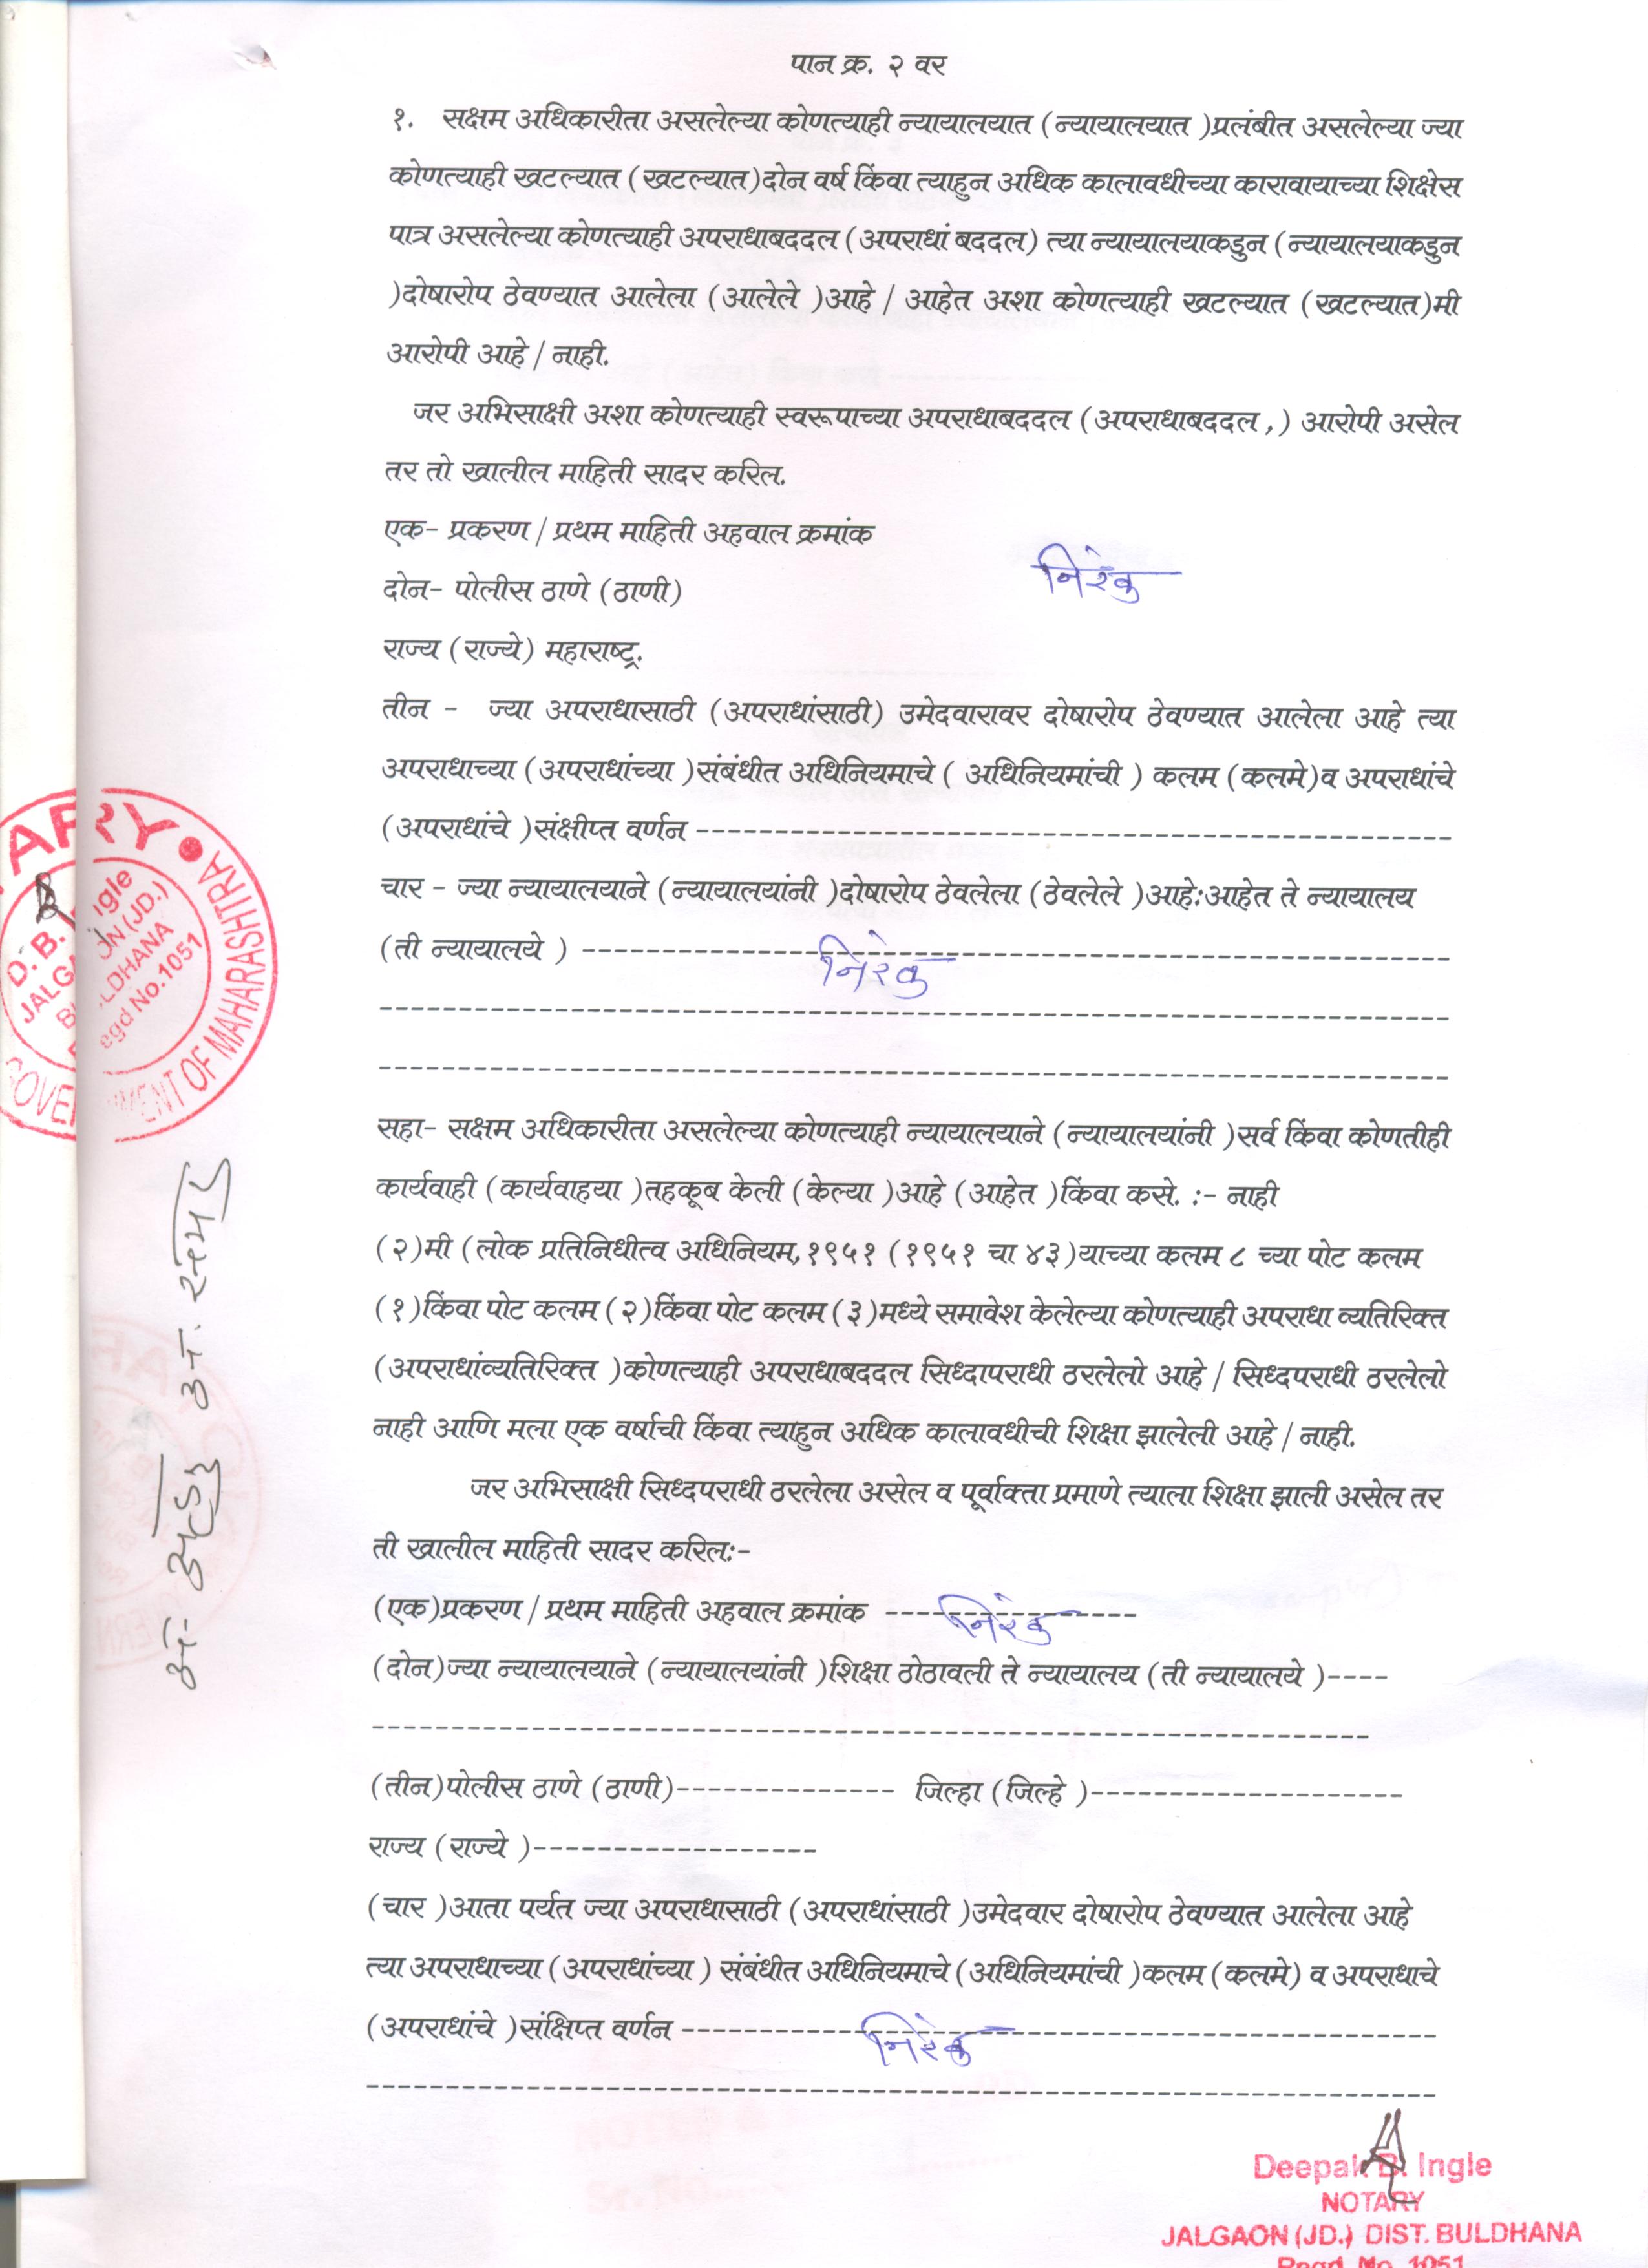 पान क्र. २ वर
१. सक्षम अधिकारीता असलेल्या कोणत्याही न्यायालयात (न्यायालयात )प्रलंबीत असलेल्या ज्या
कोणत्याही खटल्यात (खटल्यात)दोन वर्ष किंवा त्याहुन अधिक कालावधीच्या कारावायाच्या शिक्षेस
पात्र असलेल्या कोणत्याही अपराधाबददल (अपराधां बददल) त्या न्यायालयाकडुन (न्यायालयाकडुन
)दोषारोप ठेवण्यात आलेला (आलेले )आहे / आहेत अशा कोणत्याही खटल्यात (खटल्यात)मी
आरोपी आहे / नाही.
जर अभिसाक्षी अशा कोणत्याही स्वरूपाच्या अपराधाबददल (अपराधाबददल ,) आरोपी असेल
तर तो खालील माहिती सादर करिल.
एक- प्रकरण / प्रथम माहिती अहवाल क्रमांक
निरंक
दोन- पोलीस ठाणे (ठाणी)
राज्य (राज्ये) महाराष्ट्र.
तीन - ज्या अपराधासाठी (अपराधांसाठी) उमेदवारावर दोषारोप ठेवण्यात आलेला आहे त्या
अपराधाच्या (अपराधांच्या )संबंधीत अधिनियमाचे ( अधिनियमांची ) कलम (कलमे)व अपराधांचे
(अपराधांचे )संक्षीप्त वर्णन ------------------------------------------------
चार - ज्या न्यायालयाने (न्यायालयांनी )दोषारोप ठेवलेला (ठेवलेले )आहे:आहेत ते न्यायालय
(ती न्यायालये ) --------------- निरंक --------------------------------
--------------------------------------------------------------------
--------------------------------------------------------------------
सहा- सक्षम अधिकारीता असलेल्या कोणत्याही न्यायालयाने (न्यायालयांनी )सर्व किंवा कोणतीही
कार्यवाही (कार्यवाहया )तहकूब केली (केल्या )आहे (आहेत )किंवा कसे. :- नाही
(२)मी (लोक प्रतिनिधीत्व अधिनियम,१९५१ (१९५१ चा ४३)याच्या कलम ८ च्या पोट कलम
(१)किंवा पोट कलम (२)किंवा पोट कलम (३)मध्ये समावेश केलेल्या कोणत्याही अपराधा व्यतिरिक्त
(अपराधांव्यतिरिक्त )कोणत्याही अपराधाबददल सिध्दापराधी ठरलेलो आहे / सिध्दपराधी ठरलेलो
नाही आणि मला एक वर्षाची किंवा त्याहुन अधिक कालावधीची शिक्षा झालेली आहे / नाही.
जर अभिसाक्षी सिध्दपराधी ठरलेला असेल व पूर्वाक्ता प्रमाणे त्याला शिक्षा झाली असेल तर
ती खालील माहिती सादर करिल:-
(एक)प्रकरण / प्रथम माहिती अहवाल क्रमांक ---- निरंक ------
(दोन)ज्या न्यायालयाने (न्यायालयांनी )शिक्षा ठोठावली ते न्यायालय (ती न्यायालये )----
----------------------------------------------------------------
(तीन)पोलीस ठाणे (ठाणी)-------------- जिल्हा (जिल्हे )--------------------
राज्य (राज्ये )------------------
(चार )आता पर्यत ज्या अपराधासाठी (अपराधांसाठी )उमेदवार दोषारोप ठेवण्यात आलेला आहे
त्या अपराधाच्या (अपराधांच्या ) संबंधीत अधिनियमाचे (अधिनियमांची )कलम (कलमे) व अपराधाचे
(अपराधांचे )संक्षिप्त वर्णन ------------ निरंक ---------------------------
--------------------------------------------------------------------
Deepak B. Ingle
NOTARY
JALGAON (JD.) DIST. BULDHANA
Regd. No. 1051
NOTARY
GOVERNMENT OF MAHARASHTRA
D. B. Ingle
JALGAON (JD.)
BULDHANA
Regd No.1051